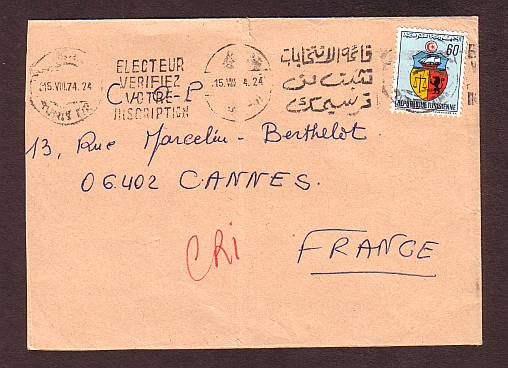 60
REPUBLIQUE TUNISIENNE
ELECTEUR
VERIFIEZ
VOTRE
INSCRIPTION
15.VIII.74.24
15.VIII 4.24
TUNIS
قائمة الانتخابات
تثبت من
ترسيمك
C.R.P
13, Rue Marcelin-Berthelot.
06.402 CANNES.
FRANCE
CRI